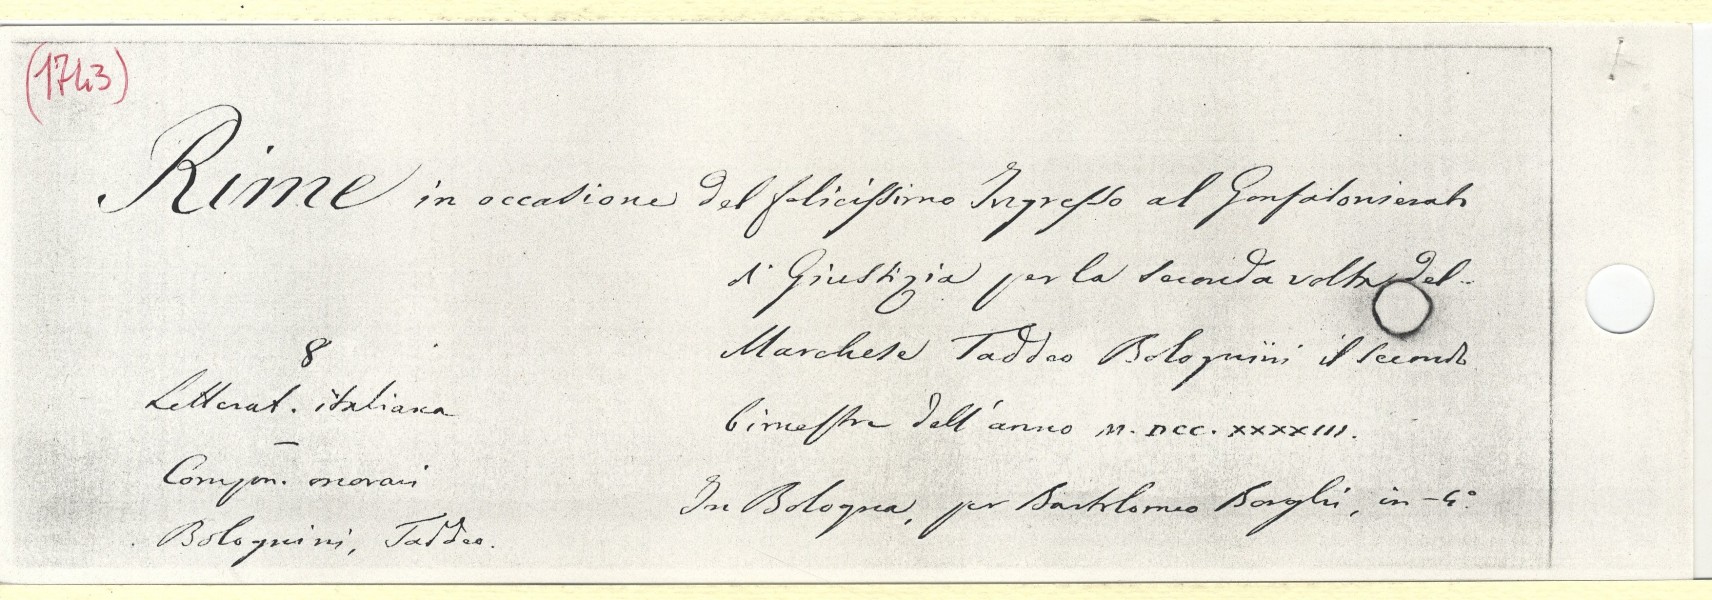 (1743)
Rime in occasione del felicissimo Ingresso al Gonfalonierato
di Giustizia per la seconda volta del
Marchese Taddeo Bolognini il secondo
bimestre dell'anno M. DCC. XXXXIII.
In Bologna, per Bartolomeo Borghi, in-4°.
8
Letterat. italiana
—
Compon. onorari
Bolognini, Taddeo.